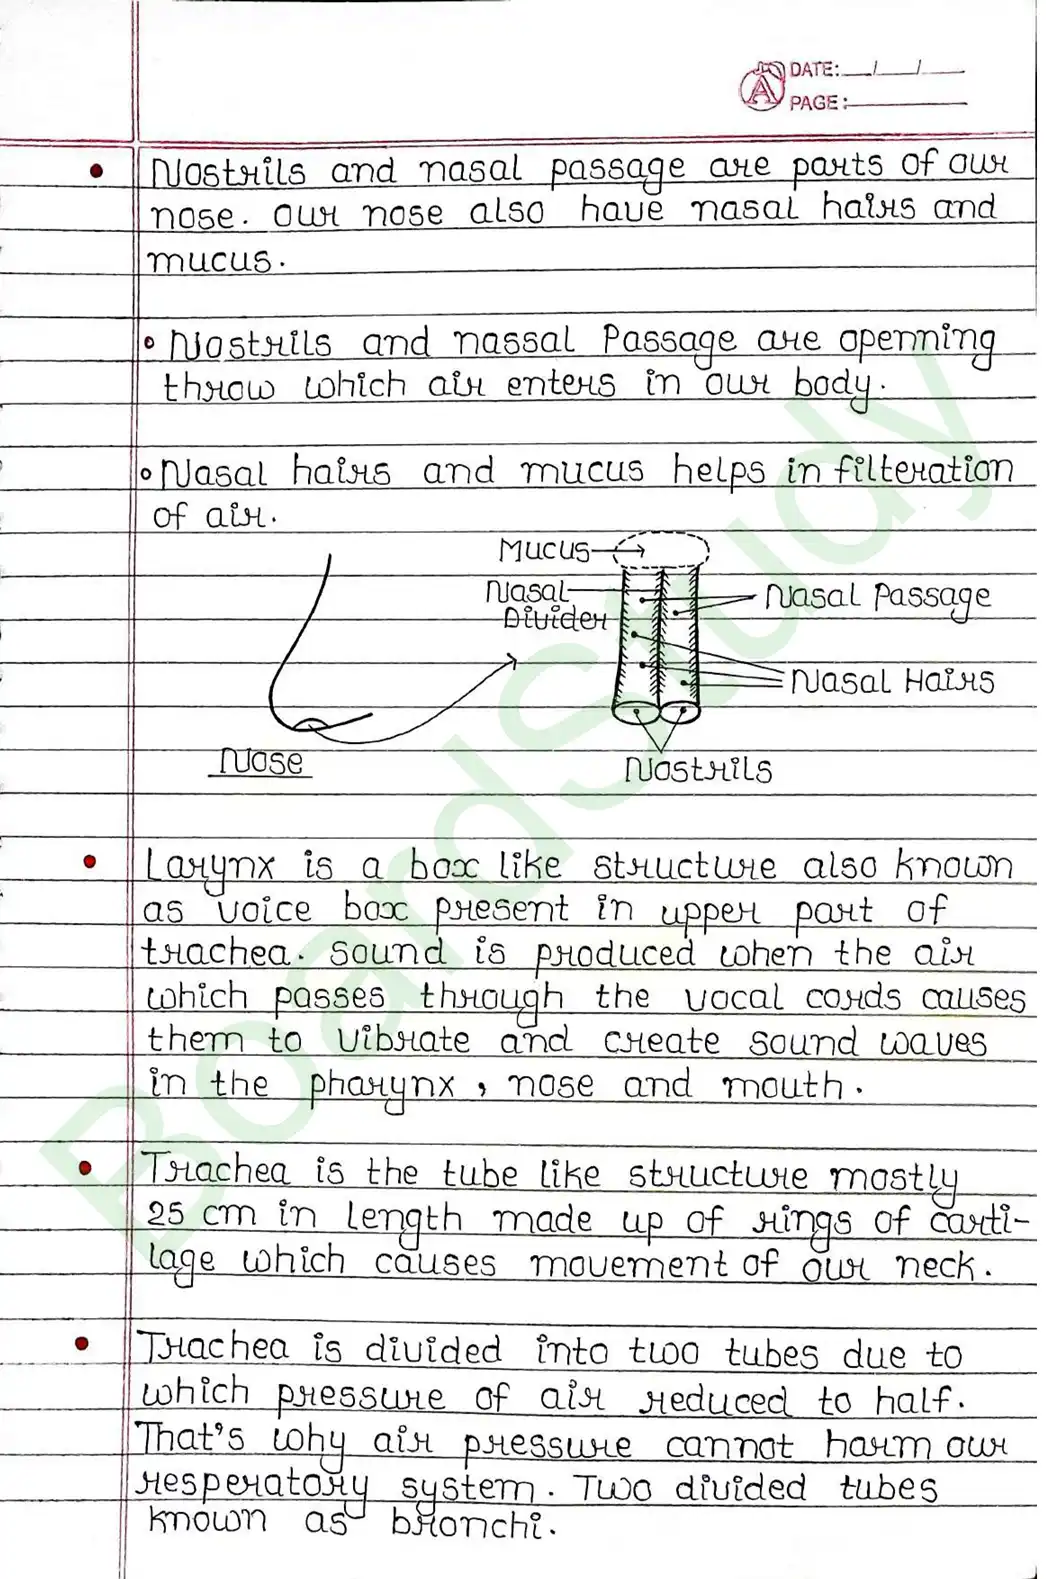 DATE: __/__/__
PAGE: ______
• Nostrils and nasal passage are parts of our
nose. our nose also have nasal hairs and
mucus.
∘ Nostrils and nassal Passage are openning
throw which air enters in our body.
∘ Nasal hairs and mucus helps in filteration
of air.
Mucus
Nasal
Divider
Nasal Passage
Nasal Hairs
Nose
Nostrils
• Larynx is a box like structure also known
as voice box present in upper part of
trachea. sound is produced when the air
which passes through the vocal cords causes
them to vibrate and create sound waves
in the pharynx, nose and mouth.
• Trachea is the tube like structure mostly
25 cm in length made up of rings of carti-
lage which causes movement of our neck.
• Trachea is divided into two tubes due to
which pressure of air reduced to half.
That's why air pressure cannot harm our
resperatory system. Two divided tubes
known as bronchi.
BoardStudy